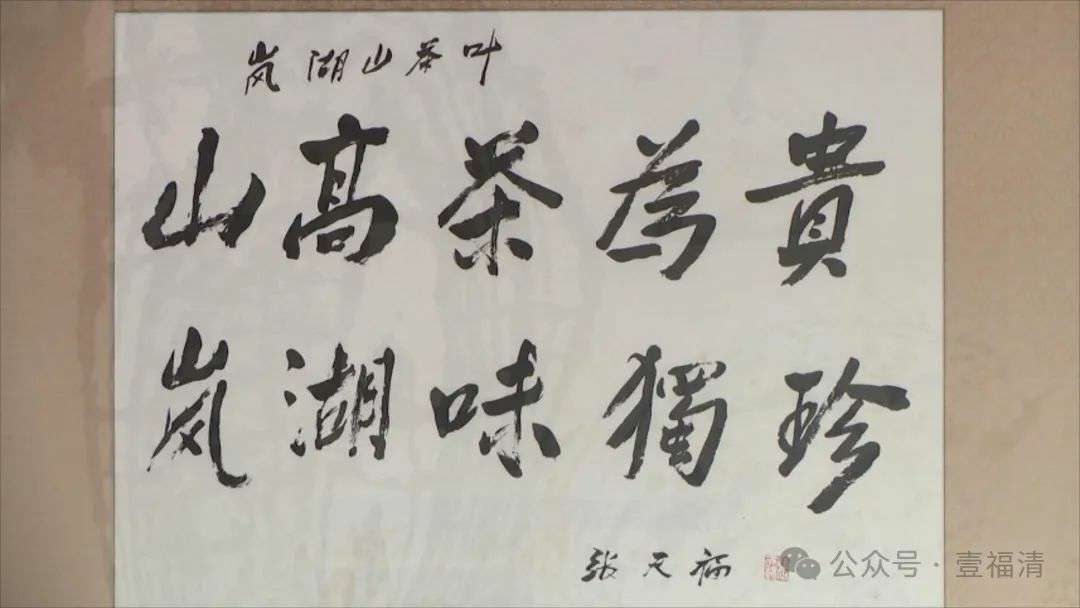 岚湖山茶叶
山高茶為貴
岚湖味獨珍
张天福
公众号·壹福清